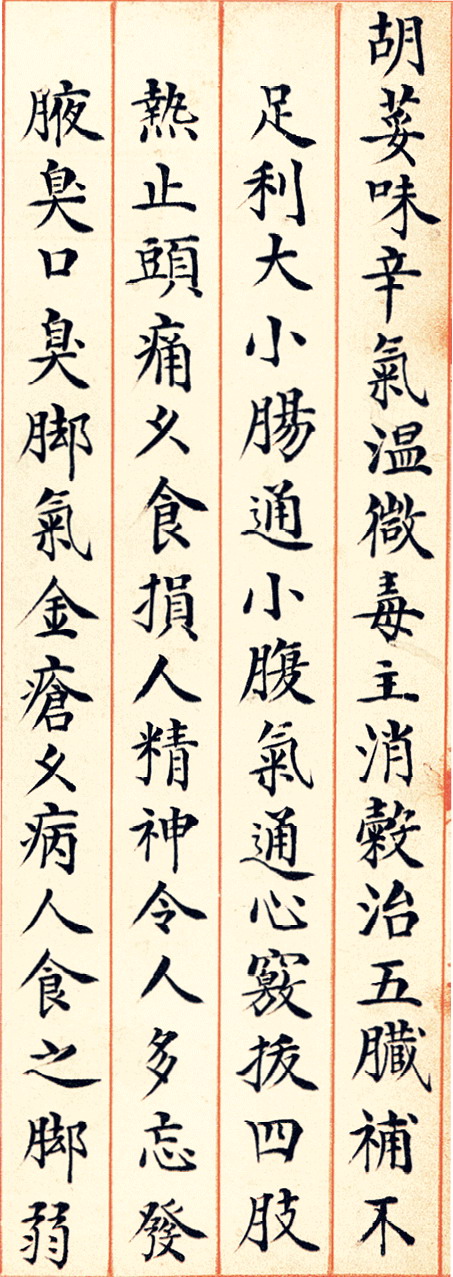 胡荽味辛氣温微毒主消穀治五臓補不
足利大小腸通小腹氣通心竅拔四肢
熱止頭痛久食損人精神令人多忘發
腋臭口臭脚氣金瘡久病人食之脚弱